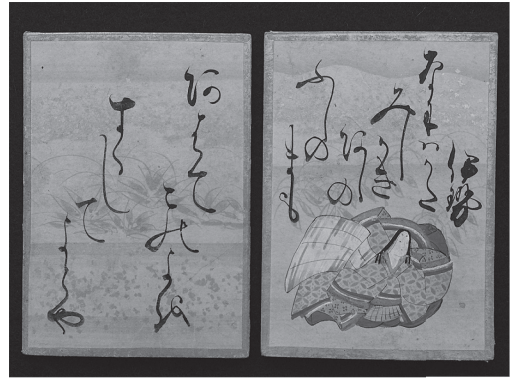 伊勢
なにハかた
みしかき
あしの
ふしの
まも
あはて
このよを
すくし
てよとや